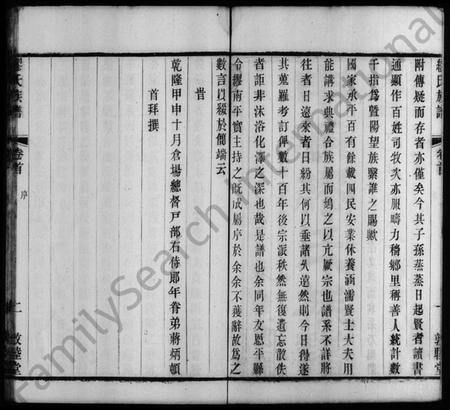 繆氏族譜
卷首
一
敦睦堂
附傳疑而存者亦僅矣今其子孫蒸蒸日起賢者讀書
通顯作百姓司牧次亦服疇力穡鄉里稱善人統計數
千指爲暨陽望族繄誰之賜歟
國家承平百有餘載四民安業休養涵濡賢士大夫用
能講求典禮合族屬而塢之以亢厥宗也譜系不詳將
往者日遠來者日紛其何以垂諸久遠然則今日得遂
其蒐羅考訂俾數十百年後宗派秩然無復遺忘散佚
者詎非沐浴化澤之深也哉是譜也余同年友恩平縣
令繆南平實主持之旣成屬序於余余不獲辭故爲之
數言以綴於簡端云
旹
乾隆甲申十月倉場總督戸部右侍郎年眷弟蔣炳頓
首拜撰
繆氏族譜
卷首
序
二
敦睦堂
FamilySearch International
FamilySearch International